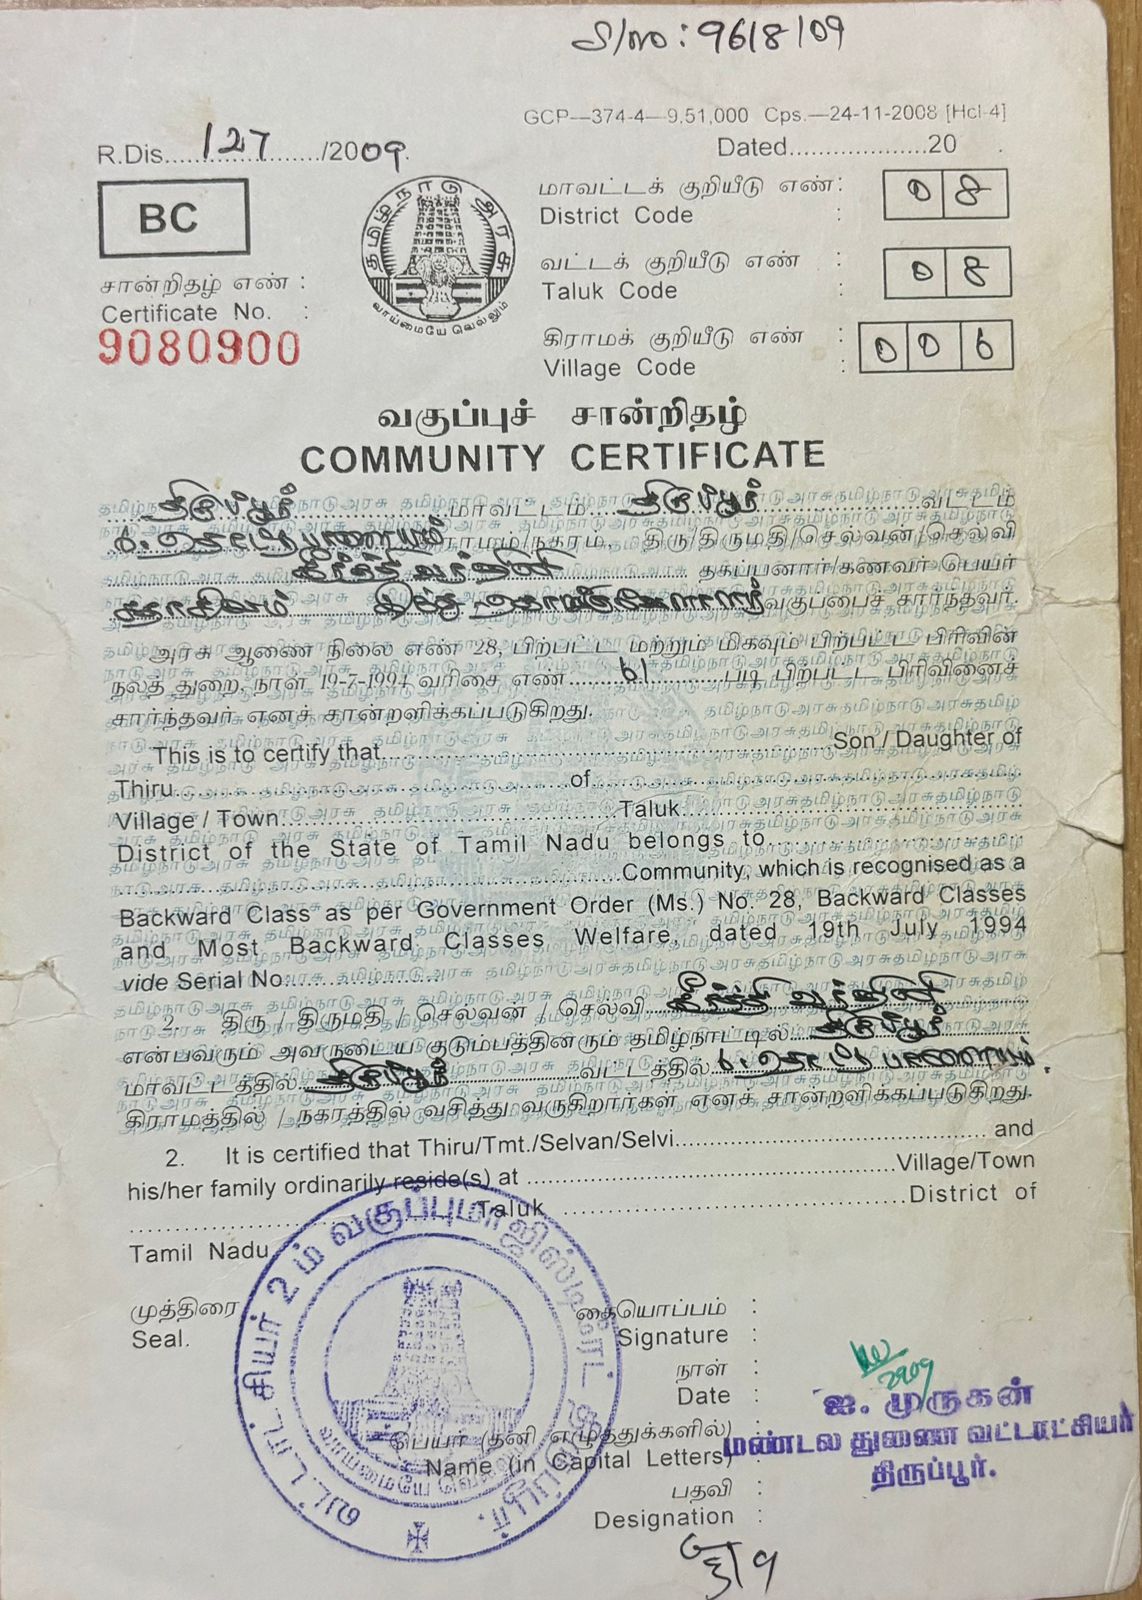 S/no: 9618/09
GCP—374-4—9,51,000 Cps.—24-11-2008 [Hcl-4]
R.Dis.....127...../2009.
Dated...................20 .
BC
தமிழ்நாடு அரசு
வாய்மையே வெல்லும்
மாவட்டக் குறியீடு எண் :
District Code :
0 8
சான்றிதழ் எண் :
Certificate No. :
9080900
வட்டக் குறியீடு எண் :
Taluk Code :
0 8
கிராமக் குறியீடு எண் :
Village Code :
0 0 6
வகுப்புச் சான்றிதழ்
COMMUNITY CERTIFICATE
திருப்பூர் மாவட்டம் திருப்பூர் வட்டம்
கிராமம்/நகரம், திரு/திருமதி/செல்வன்/செல்வி
கீர்த்தி வர்ஷினி தகப்பனார்/கணவர் பெயர்
இந்து வகுப்பைச் சார்ந்தவர்.
அரசு ஆணை நிலை எண் 28, பிற்பட்ட மற்றும் மிகவும் பிற்பட்ட பிரிவின்
நலத் துறை, நாள் 19-7-1994 வரிசை எண் 61 படி பிற்பட்ட பிரிவினைச்
சார்ந்தவர் எனச் சான்றளிக்கப்படுகிறது.
This is to certify that..............................Son / Daughter of
Thiru..............................of..............................
Village / Town..............................Taluk..............................
District of the State of Tamil Nadu belongs to....................
..............................Community, which is recognised as a
Backward Class as per Government Order (Ms.) No. 28, Backward Classes
and Most Backward Classes Welfare, dated 19th July 1994
vide Serial No....................
2. திரு / திருமதி / செல்வன் / செல்வி கீர்த்தி வர்ஷினி
என்பவரும் அவருடைய குடும்பத்தினரும் தமிழ்நாட்டில் திருப்பூர்
மாவட்டத்தில் திருப்பூர் வட்டத்தில்
கிராமத்தில் / நகரத்தில் வசித்து வருகிறார்கள் எனச் சான்றளிக்கப்படுகிறது.
2. It is certified that Thiru/Tmt./Selvan/Selvi.............................. and
his/her family ordinarily reside(s) at ..............................Village/Town
..............................Taluk ..............................District of
Tamil Nadu
முத்திரை
Seal.
வட்டாட்சியர் 2 ம் வகுப்பு மாஜிஸ்டிரேட் திருப்பூர்.
வாய்மையே வெல்லும்
கையொப்பம் :
Signature :
நாள் :
Date :
ஐ. முருகன்
மண்டல துணை வட்டாட்சியர்
திருப்பூர்.
பெயர் (தனி எழுத்துக்களில்) :
Name (in Capital Letters) :
பதவி :
Designation :